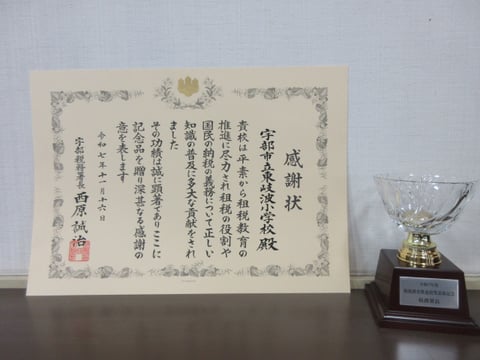 感謝状
宇部市立東岐波小学校 殿
貴校は平素から租税教育の
推進に尽力され租税の役割や
国民の納税の義務について正しい
知識の普及に多大な貢献をされ
ました
その功績は誠に顕著でありここに
記念品を贈り深甚なる感謝の
意を表します
令和七年十一月十六日
宇部税務署長 西原 誠治